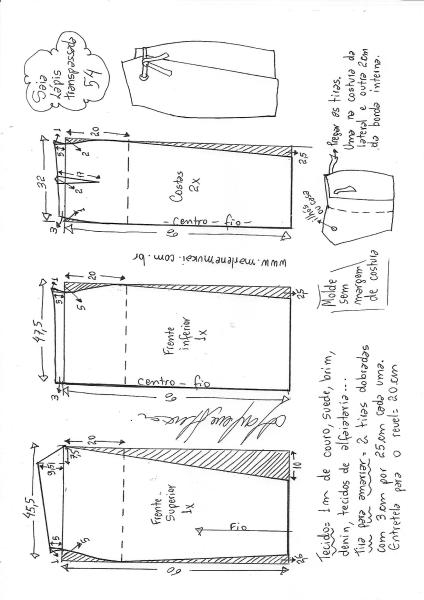 Saia
Lápis
transpassada
54
Pregar as tiras.
Uma na costura da
lateral e outra 20cm
da borda interna.
ilhós
ou casa
Molde
sem
margem
de costura
32
1
5
20
2
17
2
3
1
Costas
2x
- centro - fio -
60
2,5
www.marlenemukai.com.br
47,5
1
5
20
5
3
Frente
inferior
1x
centro - fio
60
2,5
45,5
9,5
7,5
20
1
5
5
Frente
Superior
1x
Fio
10
60
Tecido= 1m de couro, suede, brim,
denin, tecidos de alfaiataria...
Tira para amarrar= 2 tiras dobradas
com 3cm por 25cm cada uma.
Entretela para o revel= 20cm